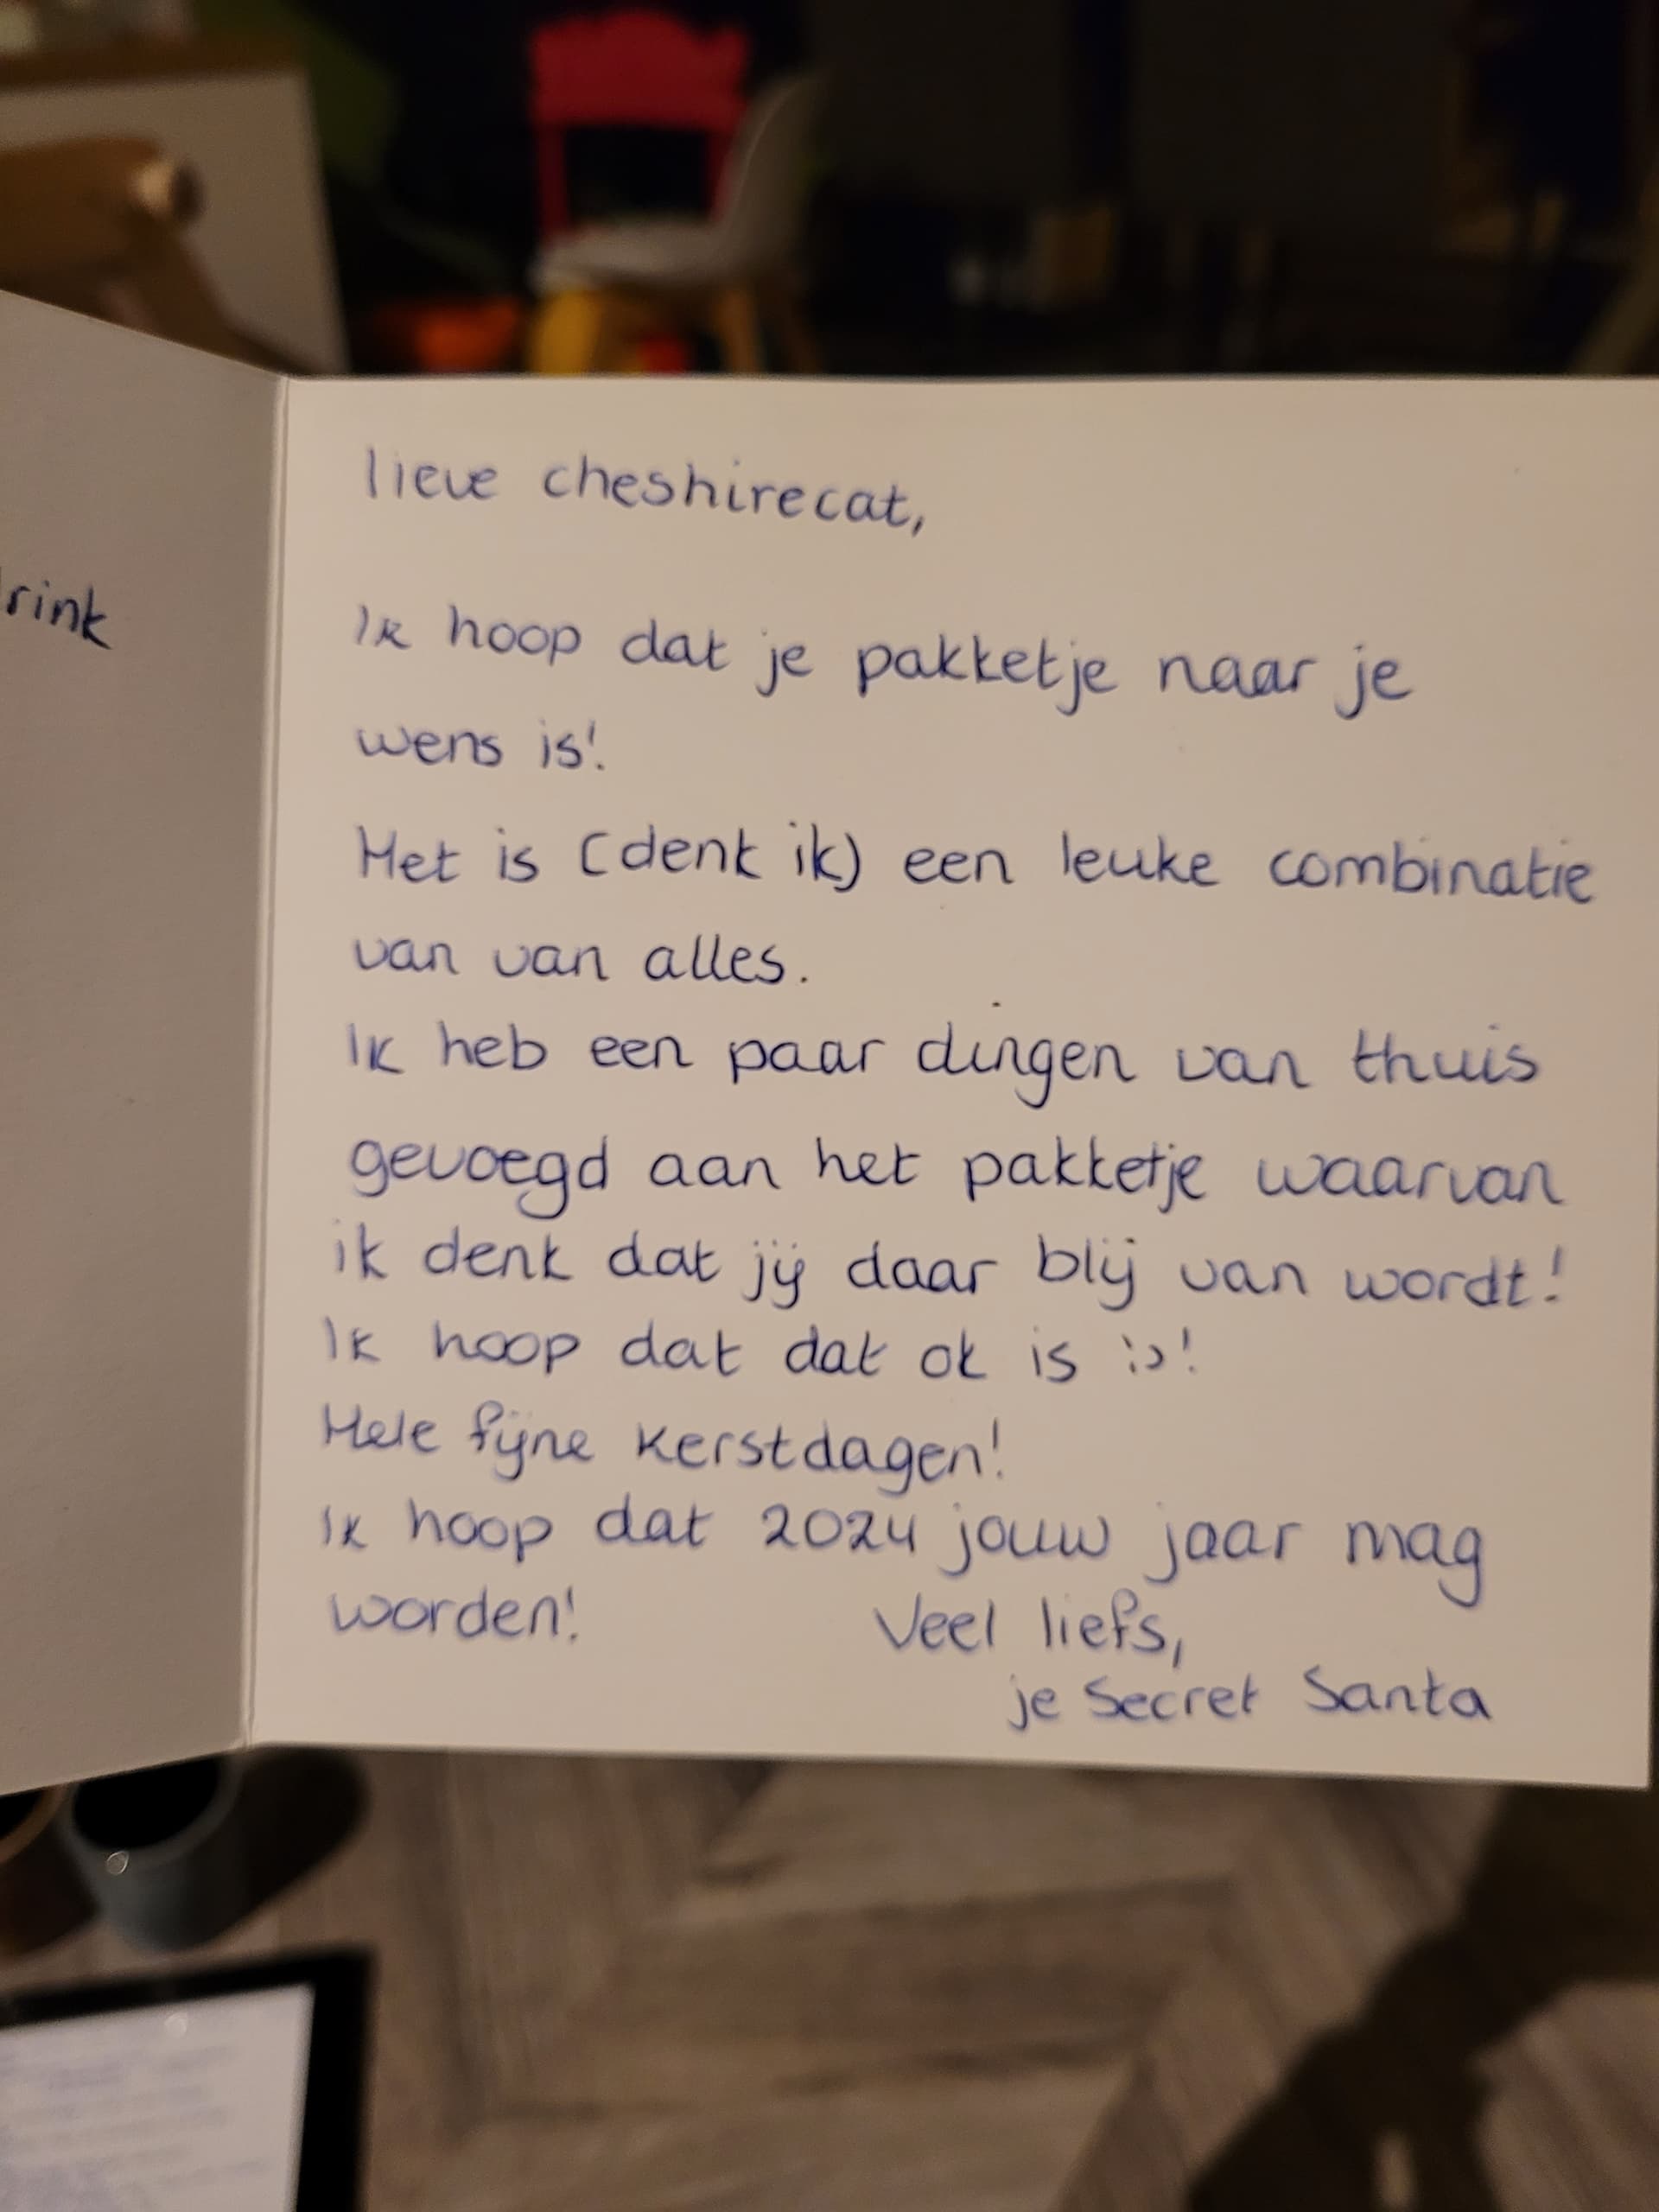 rink
lieve cheshirecat,
Ik hoop dat je pakketje naar je
wens is!
Het is (denk ik) een leuke combinatie
van van alles.
Ik heb een paar dingen van thuis
gevoegd aan het pakketje waarvan
ik denk dat jij daar blij van wordt!
Ik hoop dat dat ok is :)!
Hele fijne kerstdagen!
Ik hoop dat 2024 jouw jaar mag
worden! Veel liefs,
je Secret Santa